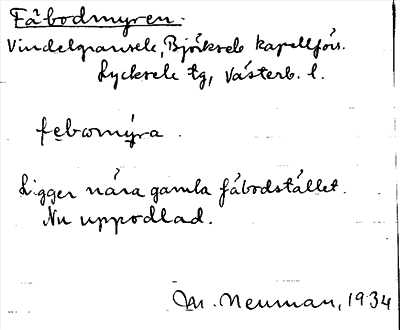 Fäbodmyren.
Vindelgransele, Björksele kapellförs.
Lycksele tg, Västerb. l.
febomýra.
Ligger nära gamla fäbodstället.
Nu uppodlad.
M. Neuman, 1934